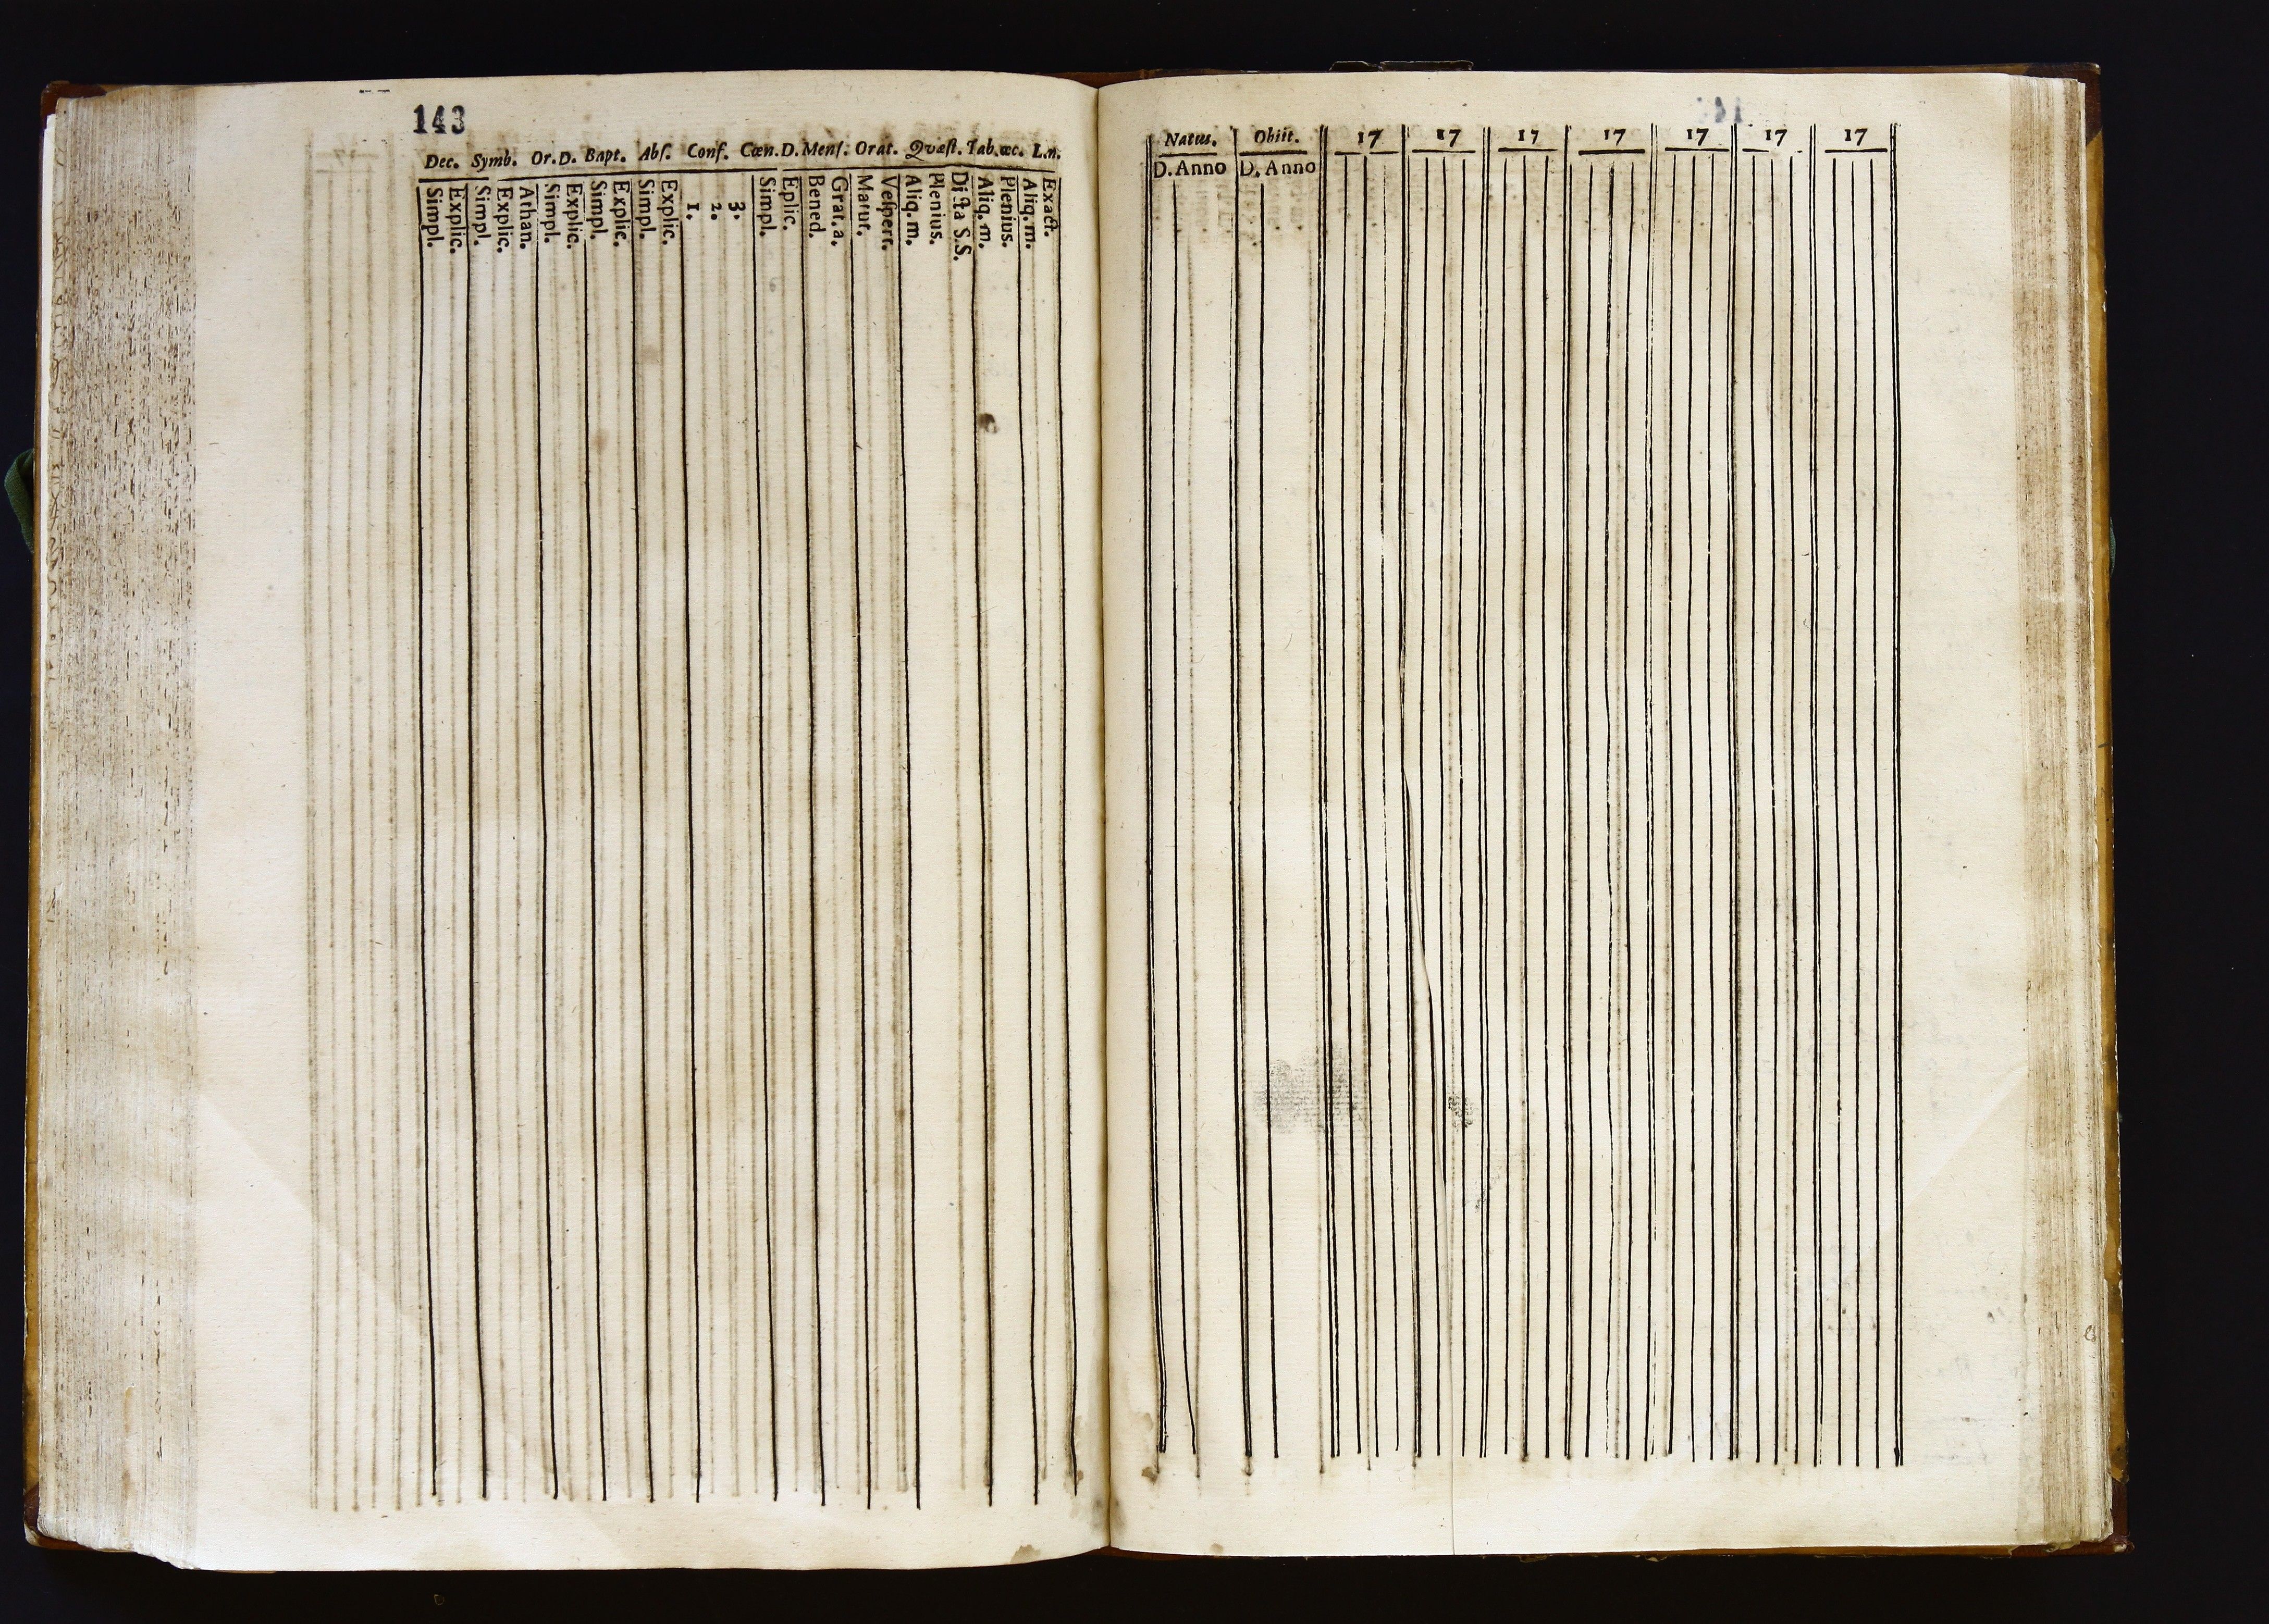 143
Dec. Symb. Or. D. Bapt. Abſ. Conf. Cœn. D. Menſ. Orat. Qvæſt. Tab. œc. L.n.
Simpl.
Explic.
Simpl.
Explic.
Athan.
Simpl.
Explic.
Simpl.
Explic.
Simpl.
Explic.
1.
2.
3.
Simpl.
Eplic.
Bened.
Grat.a.
Matut.
Veſpert.
Aliq. m.
Plenius.
Dicta S.S.
Aliq. m.
Plenius.
Aliq. m.
Exact.
Natus. Obiit. 17 17 17 17 17 17 17
D. Anno D. Anno